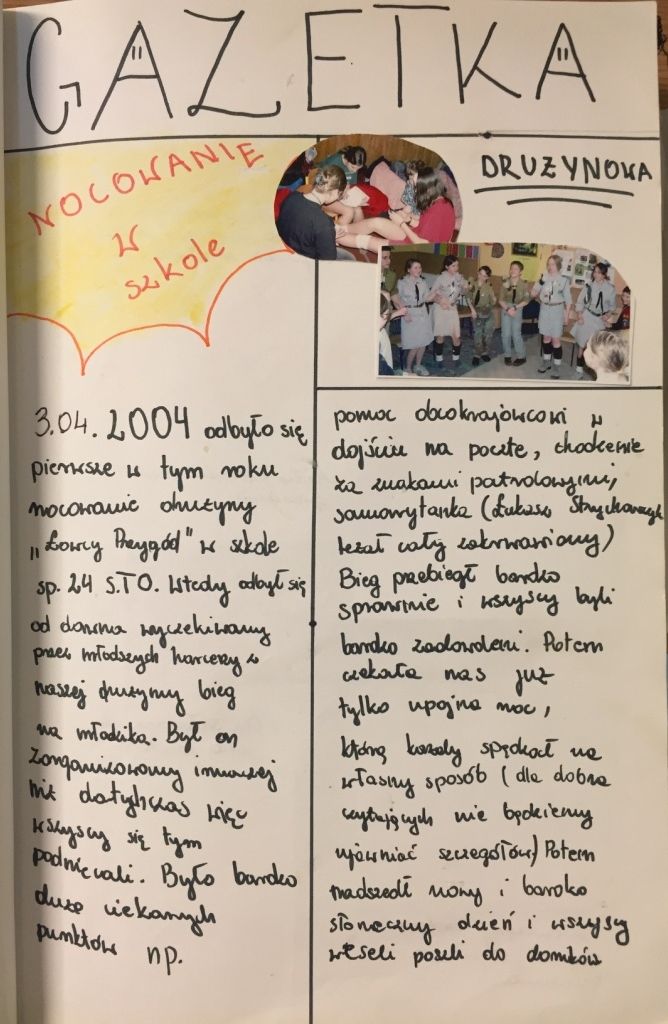 GAZETKA
DRUŻYNOWA
NOCOWANIE
W
szkole
3.04.2004 odbyło się
pierwsze w tym roku
nocowanie drużyny
"Łowcy Przygód" w szkole
sp. 24 S.T.O. Wtedy odbył się
od dawna wyczekiwany
przez młodszych harcerzy z
naszej drużyny bieg
na młodzika. Był on
zorganizowany inaczej
niż dotychczas więc
wszyscy się tym
podniecali. Było bardzo
dużo ciekawych
punktów np.
pomoc obcokrajowcowi w
dojściu na pocztę, chodzenie
za znakami patrolowymi,
samarytanka (Łukasz
leżał cały zakrwawiony)
Bieg przebiegł bardzo
sprawnie i wszyscy byli
bardzo zadowoleni. Potem
czekała nas już
tylko upojna noc,
którą każdy spędzał na
własny sposób (dla dobra
czytających nie będziemy
ujawniać szczegółów) Potem
nadszedł nowy i bardzo
słoneczny dzień i wszyscy
weseli poszli do domków